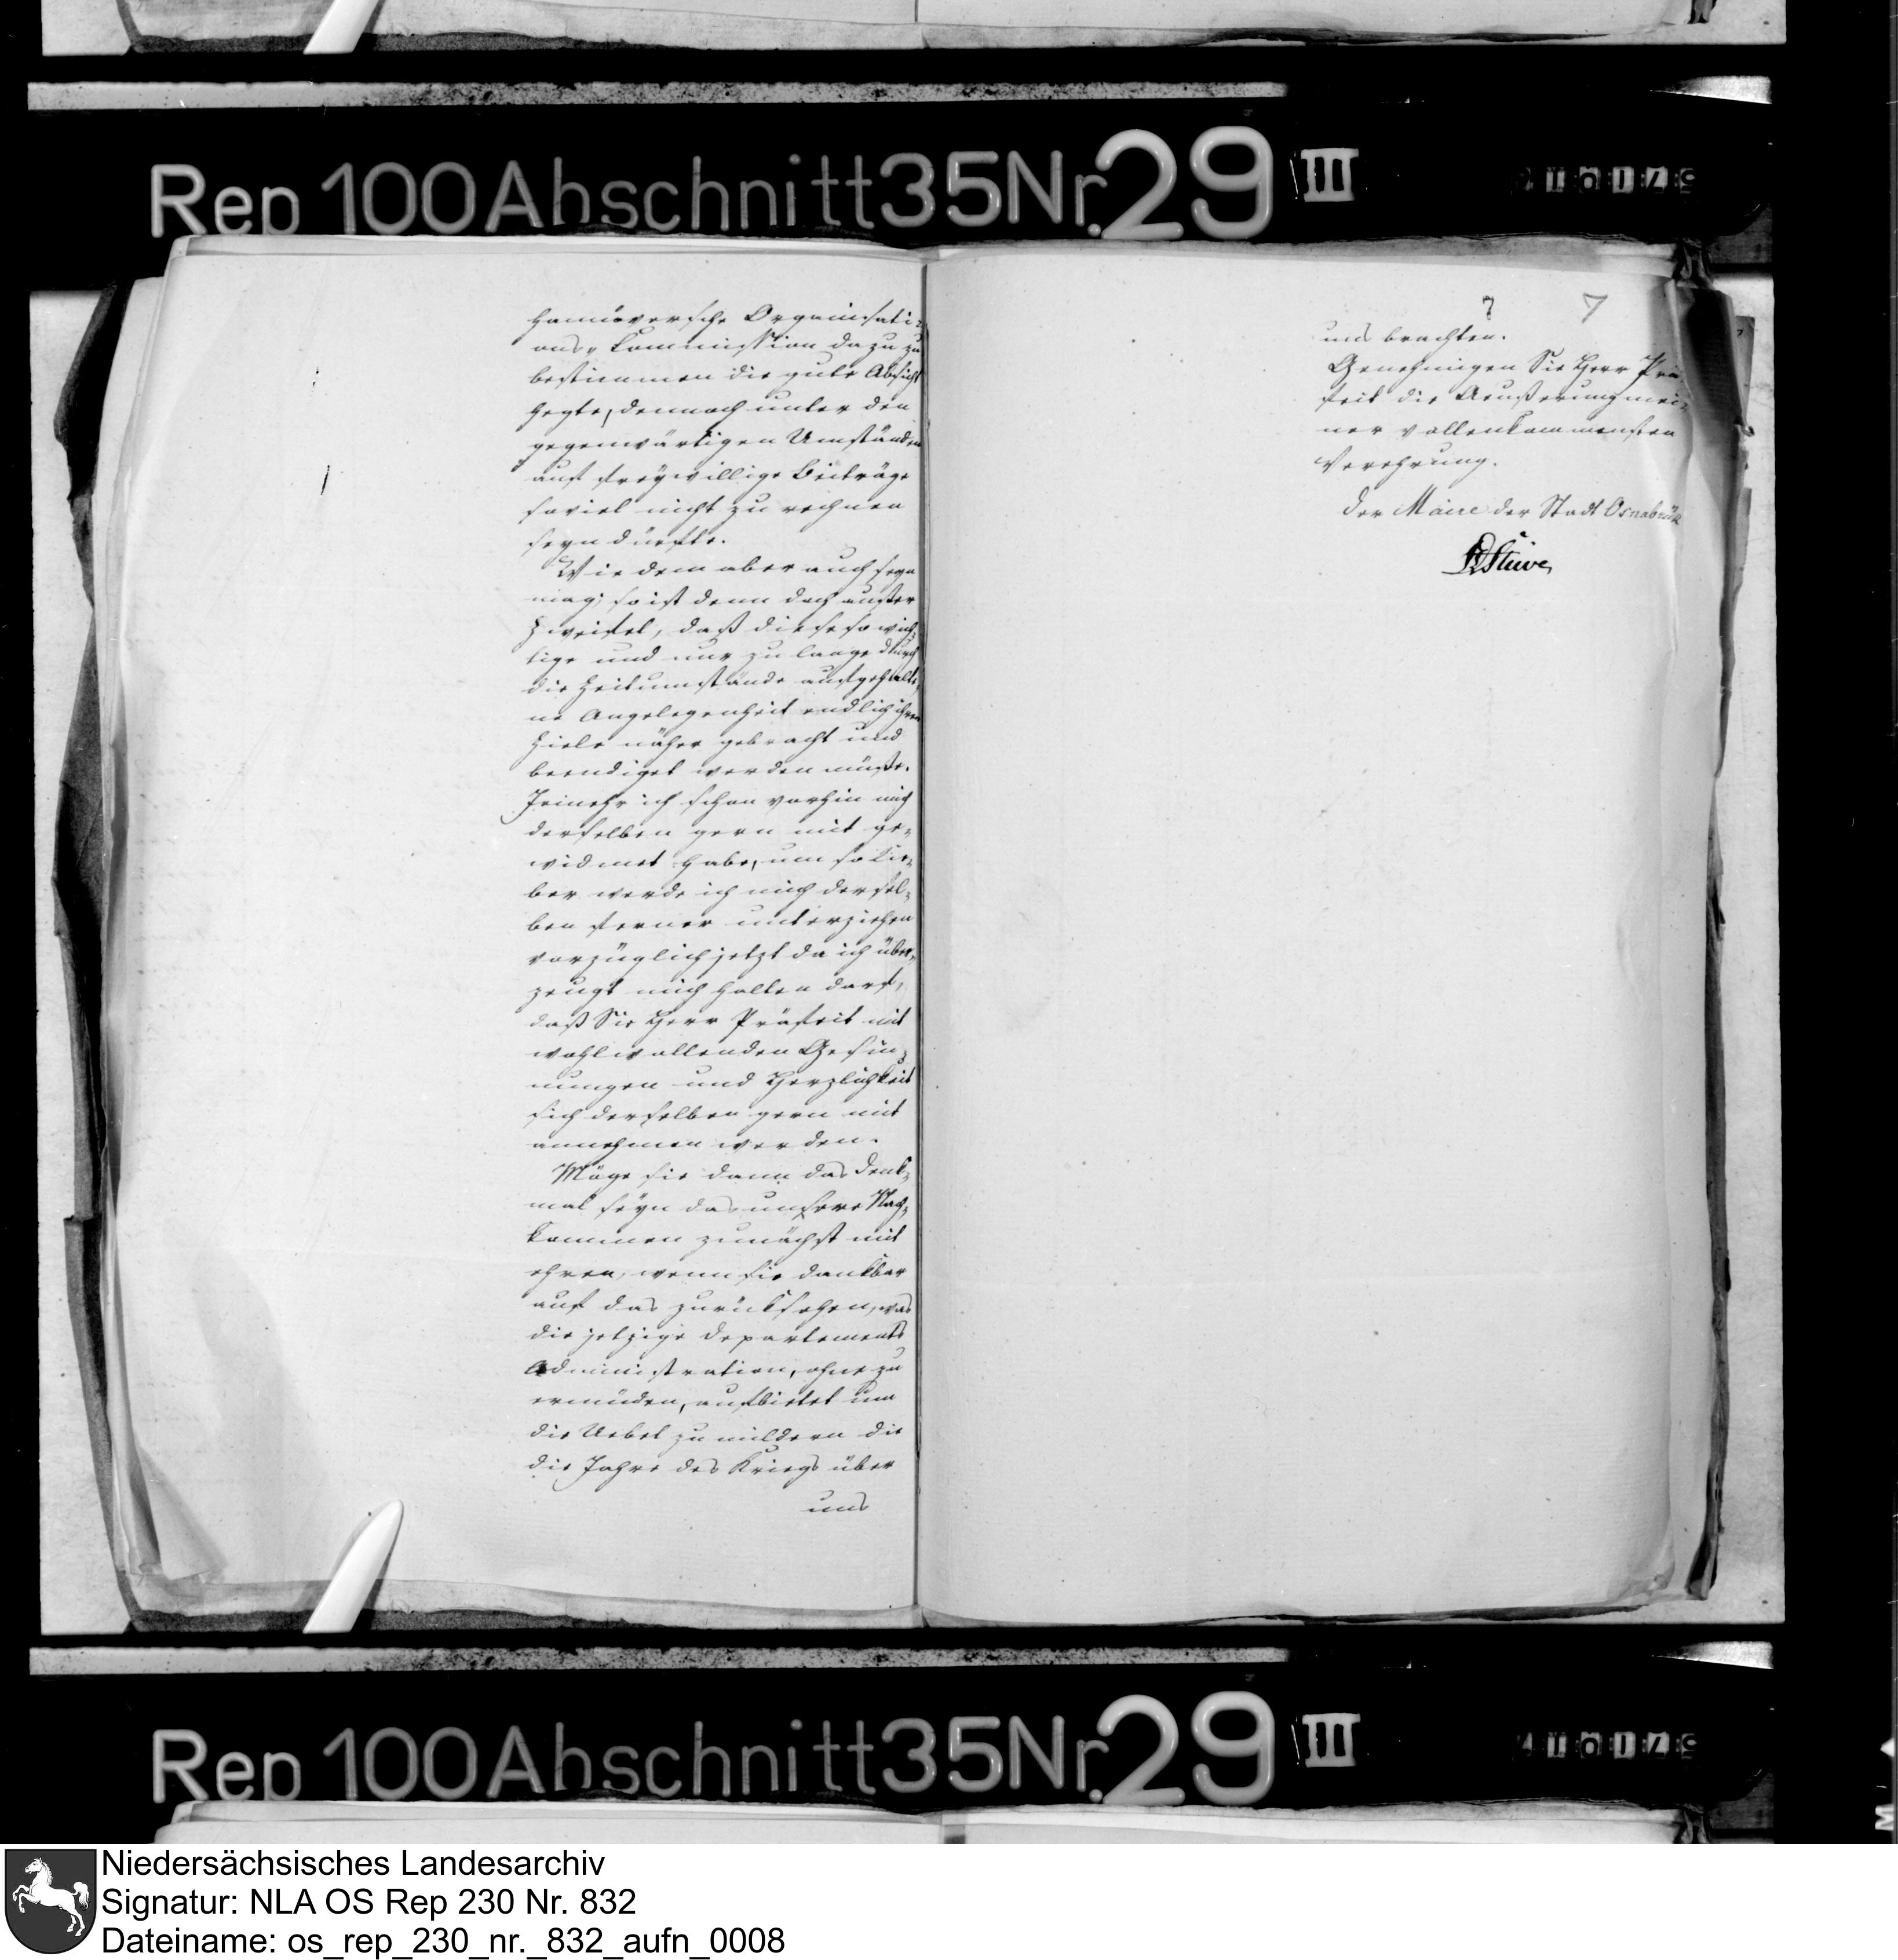 Rep 100 Abschnitt 35 Nr. 29 III
hannöversche Organisati-
ons-Kommission dazu zu
bestimmen die gute Absicht
hegte, dennoch unter den
gegenwärtigen Umständen
auf freywillige Beiträge
soviel nicht zu rechnen
seyn dürfte.
Wie dem aber auch seyn
mag; so ist denn doch außer
Zweifel, daß diese so wich-
tige und nur zu lange durch
die Zeitumstände aufgehalte-
ne Angelegenheit endlich ihrem
Ziele näher gebracht und
beendiget werden müße.
Jemehr ich schon vorhin mich
derselben gern mit ge-
widmet habe, um so lie-
ber werde ich mich dersel-
ben ferner unterziehen
vorzüglich jetzt da ich über-
zeugt mich halten darf,
daß Sie Herr Präfekt mit
wohlwollenden Gesin-
nungen und Herzlichkeit
sich derselben gern mit
annehmen werden.
Möge sie dann das Denk-
mal seyn das unsere Nach-
kommen zunächst mit
ehren, wenn sie dankbar
auf das zurücksehen, was
die jetzige Departements
Administration, ohne zu
ermüden, aufbietet um
die Uebel zu mildern die
die Jahre des Kriegs über
uns
7 7
uns brachten.
Genehmigen Sie Herr Prä-
fekt die Aeußerung mei-
ner vollenkommensten
Verehrung.
Der Maire der Stadt Osnabrük
Stüve
Rep 100 Abschnitt 35 Nr. 29 III
Niedersächsisches Landesarchiv
Signatur: NLA OS Rep 230 Nr. 832
Dateiname: os_rep_230_nr._832_aufn_0008